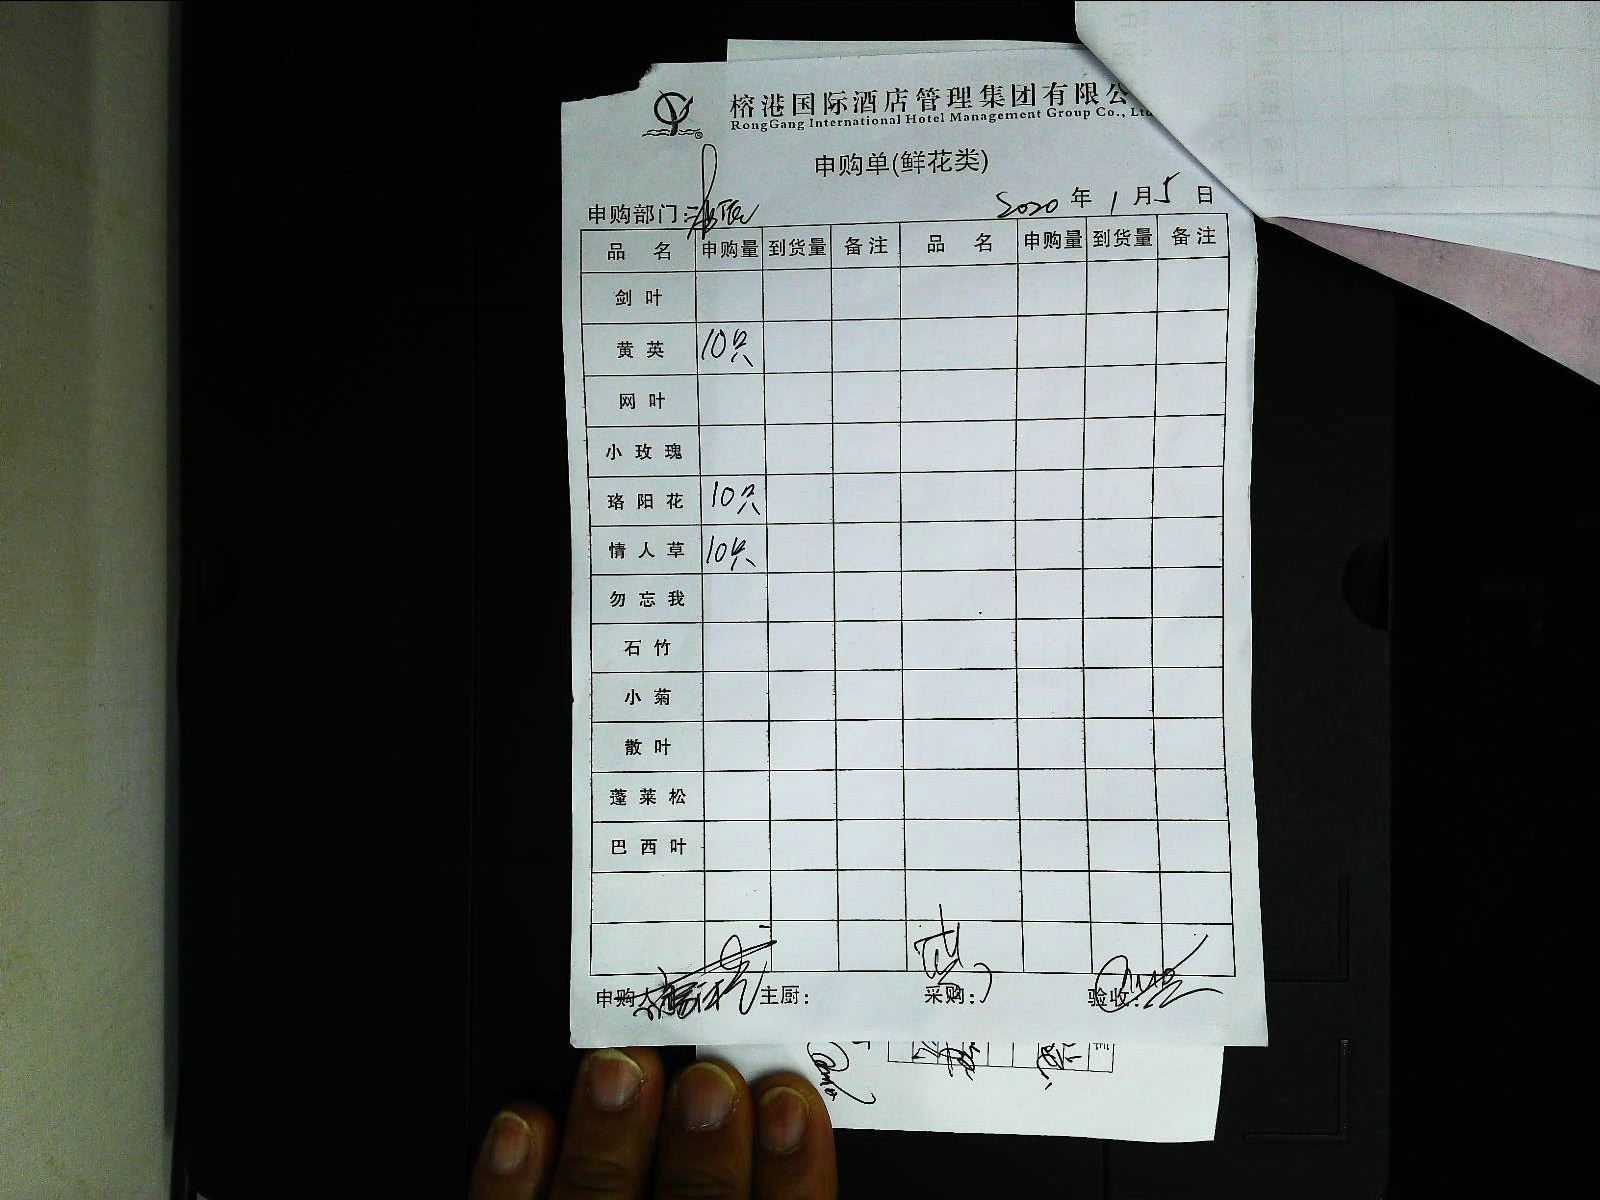 榕港国际酒店管理集团有限公
RongGang International Hotel Management Group Co., Ltd
申购单(鲜花类)
申购部门: 2020 年 1 月 5 日
品 名 申购量 到货量 备注 品 名 申购量 到货量 备注
剑叶
黄英 10只
网叶
小玫瑰
珞阳花 10只
情人草 10只
勿忘我
石竹
小菊
散叶
蓬莱松
巴西叶
申购人 主厨: 采购: 验收: